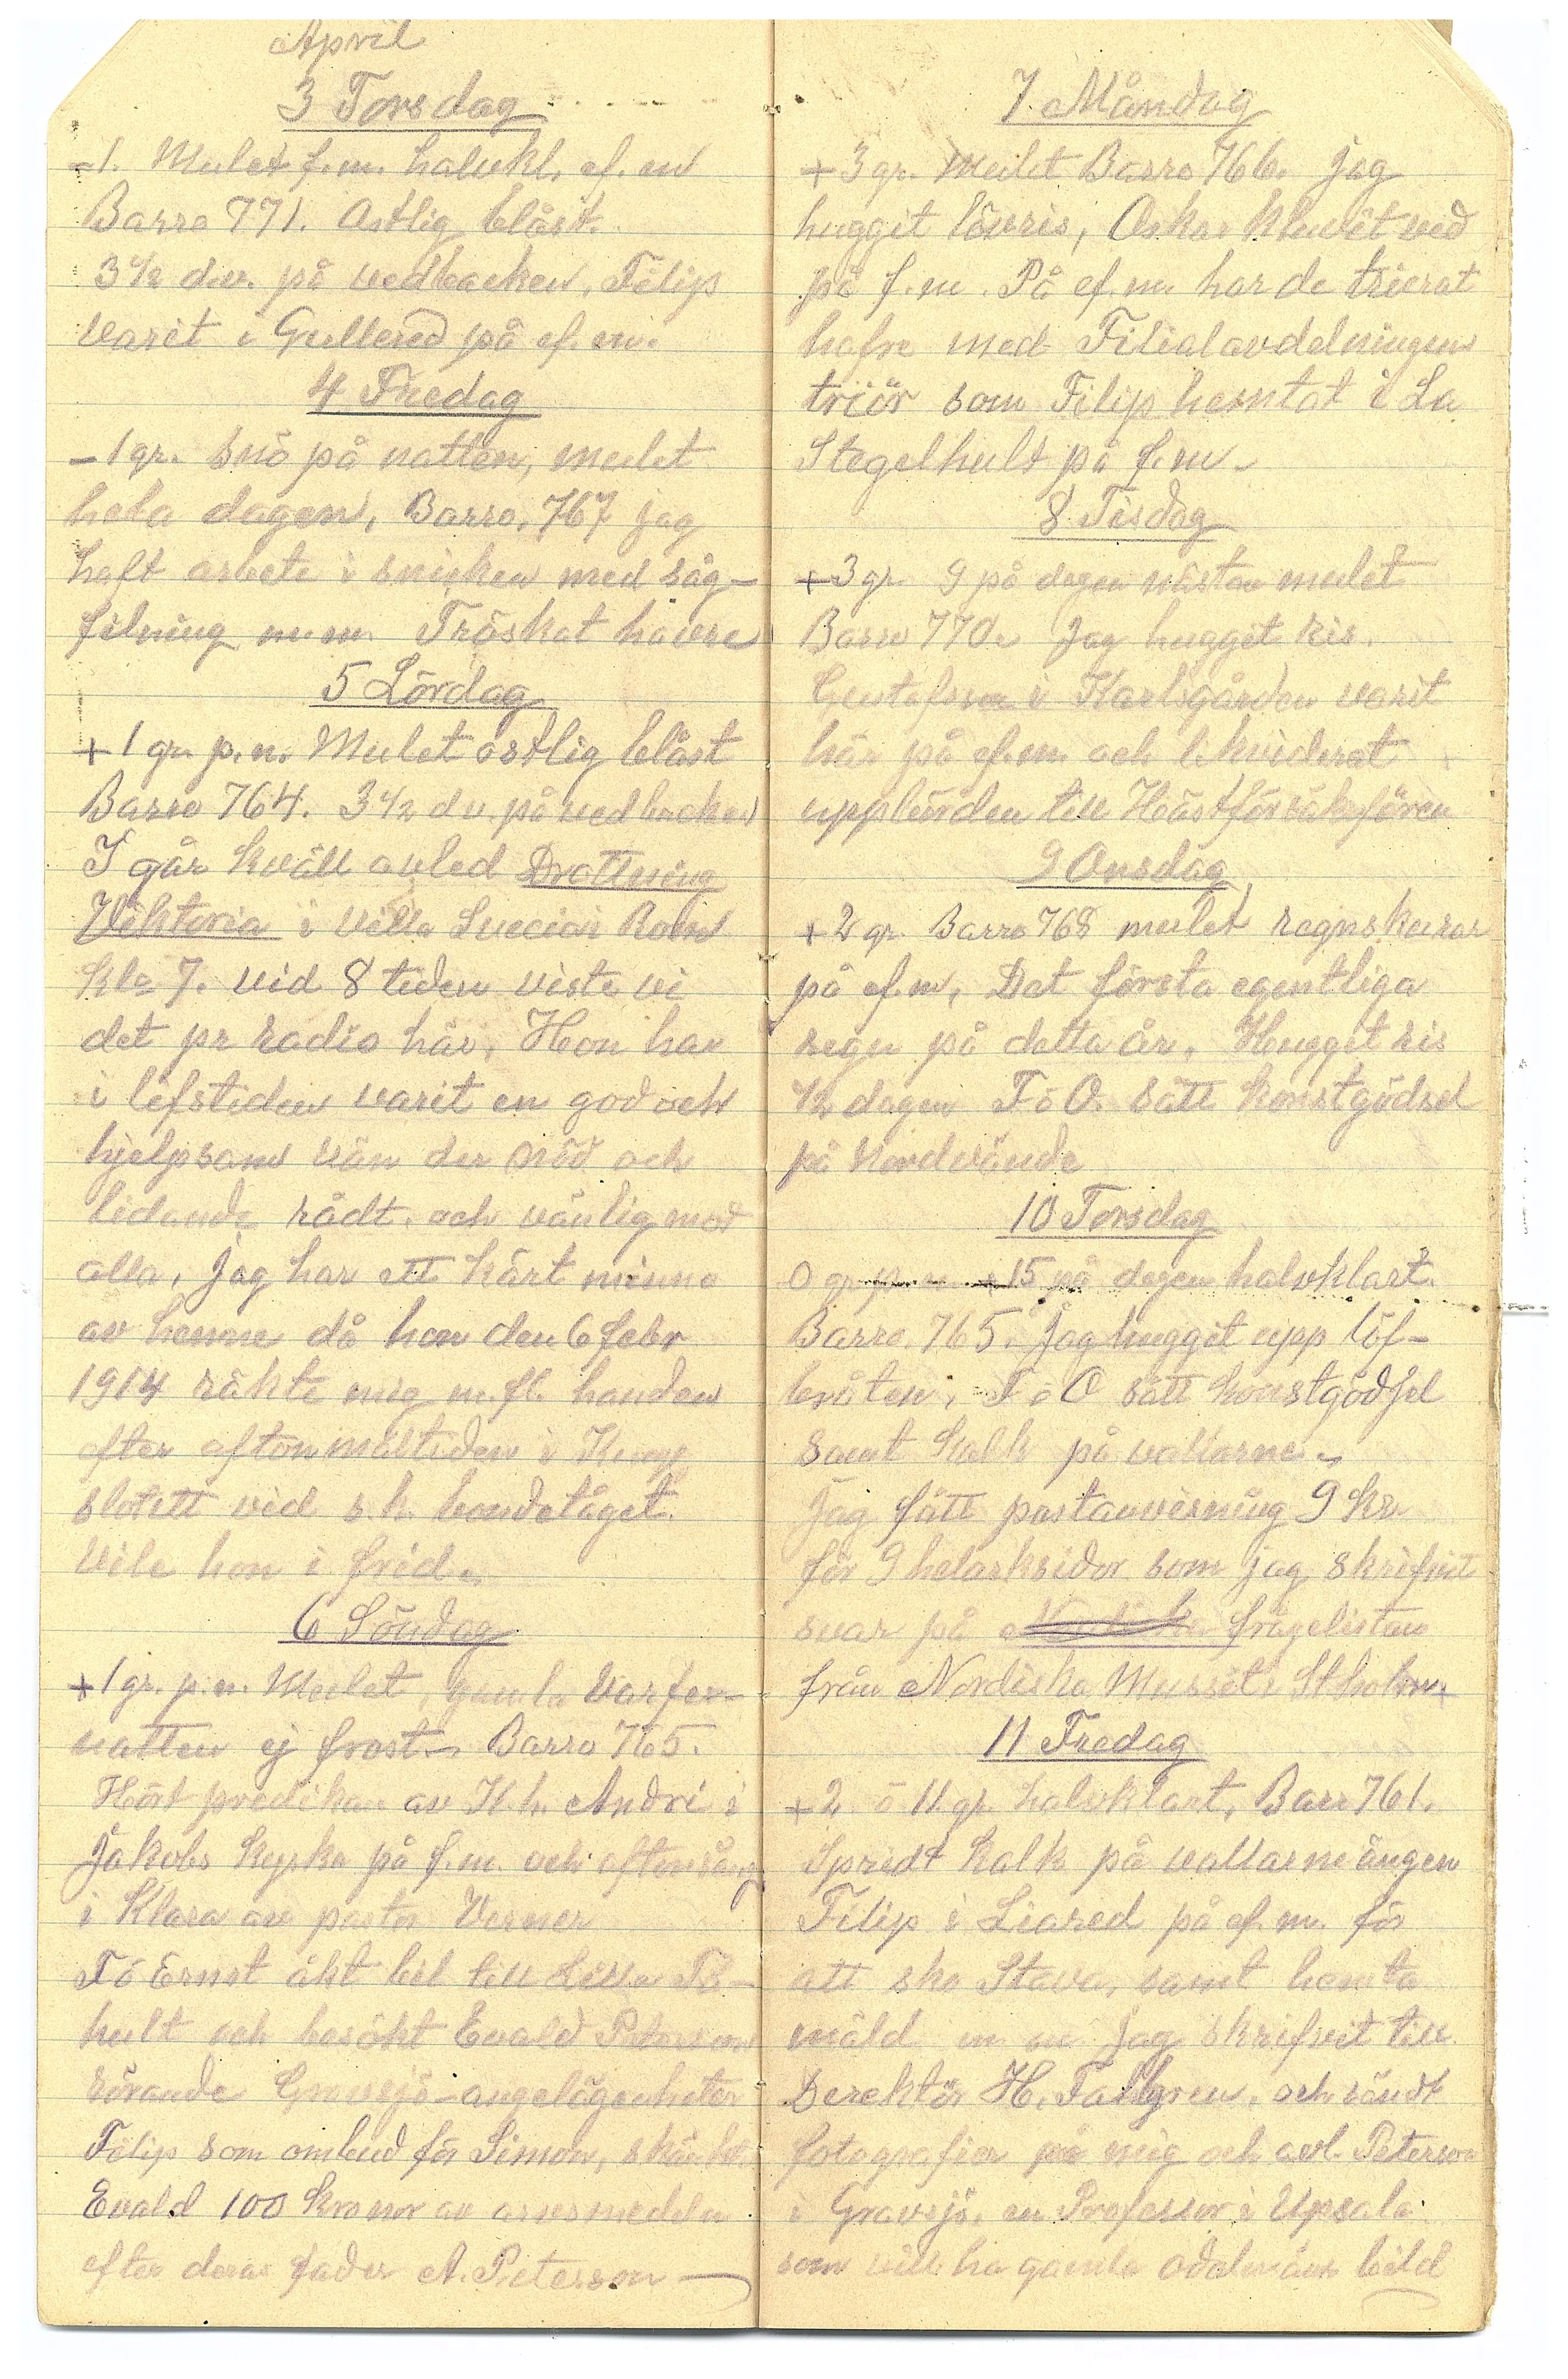 April
3 Torsdag
-1. Mulet f.m. halvkl. ef. m
Barro 771. Ostlig blåst.
3 1/2 d.v. på vedbacken. Filip
varit i Gullered på ef. m.
4 Fredag
-1 gr. snö på natten, mulet
hela dagen, Barro. 767 jag
haft arbete i snicken med såg-
filning m.m. Tröskat havre
5 Lördag
+1 gr. p.n. Mulet ostlig blåst
Barro 764. 3 1/2 d v. på vedbacken
I går kväll avled Drottning
Viktoria i Villa Svecia i Rom
kl. 7. vid 8 tiden viste vi
det pr radio här. Hon har
i lifstiden varit en god och
hjelpsam vän der nöd och
lidande rådt. och vänlig mot
alla, jag har ett kärt minne
av henne då hon den 6 febr
1914 räkte mig m.fl. handen
efter aftonmåltiden i Kung
slottett vid s.k. bondetåget.
Vile hon i frid.
6 Söndag
+1 gr. p.n. Mulet, gamla Varfru-
natten ej frost. Barro 765.
Hört predikan av K.h. Andrè i
Jakobs kyrka på f.m. och aftonsång
i Klara av pastor Verner
F ó Ernst åkt bil till Lilla Få-
hult och besökt Evald Peterson
rörande Gravsjö-angelägenheter
Filip som ombud för Simon, skänkt
Evald 100 kronor av arvsmedeln
efter deras fader A. Peterson
7 Måndag
+3 gr. Mulet Barro 766. jag
huggit lövris, Oskar kluvit ved
på f.m. På ef.m. har de trierat
hafre med Filialavdelningens
triör som Filip hemtat i La
Stegelhult på f.m.
8 Tisdag
+3 gr 9 på dagen nästan mulet
Barro 770. Jag huggit ris.
Gustafson i Karlsgården varit
här på ef.m. och likviderat
uppbörden till Hästförsäkrfören
9 Onsdag
+2 gr Barro 768 mulet regnskurar
på ef.m, Det första egentliga
regn på detta år. Huggit ris
1/2 dagen F ó O. sått konstgödsel
på Nordvände
10 Torsdag
0 gr p.n. +15 på dagen halvklart.
Barro. 765. Jag huggit upp löf-
bråten, F ó O sått konstgödsel
samt kalk på vallarne.
Jag fått postanvisning 9 kr
för 9 helarksidor som jag skrifvit
svar på Nordiska frågelistan
från Nordiska Museet i Stholm.
11 Fredag
+2 ó 11 gr. halvklart. Barr 761.
Spridt kalk på vallarne ängen
Filip i Liared på ef.m. för
att sko Stava, samt hemta
mäld m m Jag skrifvit till
Derektör H. Tallgren. och sändt
fotografier på mig och avl. Peterson
i Gravsjö. en Professor i Upsala
som vill ha gamla odalmäns bild